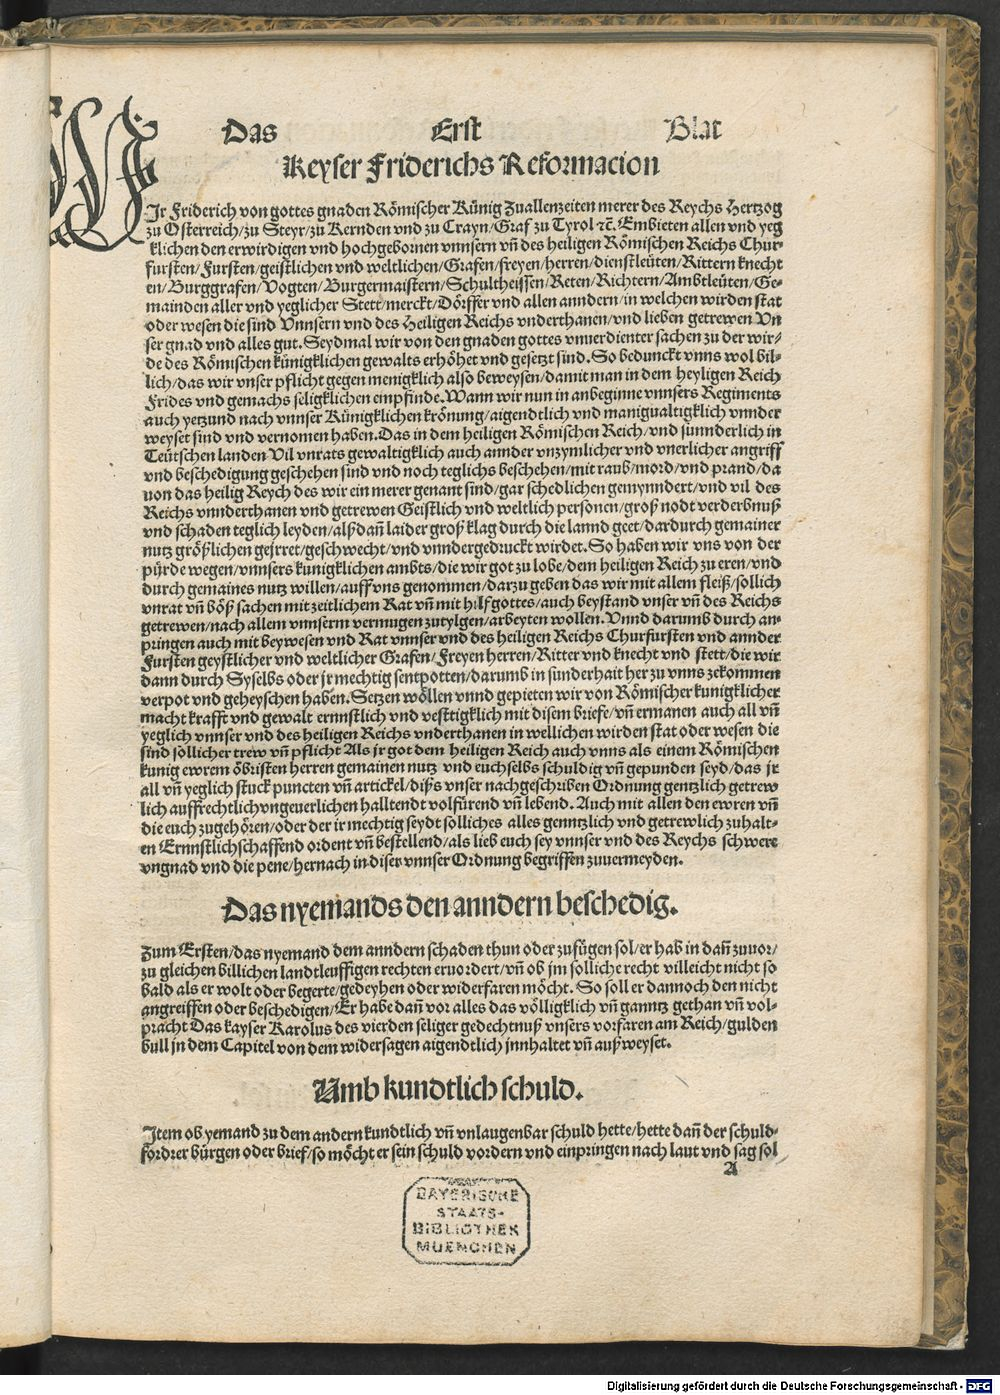 Das Erst Blat
Keyser Friderichs Reformacion
WIr Friderich von gottes gnaden Römischer Künig Zuallenzeiten merer des Reychs Hertzog
zu Osterreich/zu Steyr/zu Kernden vnd zu Crayn/Graf zu Tyrol ꝛc̃. Embieten allen vnd yeg
klichen den erwirdigen vnd hochgebornen vnnsern vn̄ des heiligen Römischen Reichs Chur-
fursten/Fursten/geistlichen vnd weltlichen/Grafen/freyen/herren/dienstleüten/Rittern knecht
en/Burggrafen/Vogten/Burgermaistern/Schultheissen/Reten/Richtern/Ambtleüten/Ge-
mainden aller vnd yeglicher Stett/merckt/Dörffer vnd allen anndern/in welchen wirden stat
oder wesen die sind Vnnsern vnd des Heiligen Reichs vnderthanen/vnd lieben getrewen Vn
ser gnad vnd alles gut. Seydmal wir von den gnaden gottes vnuerdienter sachen zu der wir-
de des Römischen künigklichen gewalts erhöhet vnd gesetzt sind. So bedunckt vnns wol bil-
lich/das wir vnser pflicht gegen menigklich also beweysen/damit man in dem heyligen Reich
Frides vnd gemachs seligklichen empfinde. Wann wir nun in anbeginne vnnsers Regiments
auch yetzund nach vnnser Künigklichen krönung/aigendtlich vnd manigualtigklich vnnder
weyset sind vnd vernomen haben. Das in dem heiligen Römischen Reich/vnd sunnderlich in
Teütschen landen Vil vnrats gewaltigklich auch annder vnzymlicher vnd vnerlicher angriff
vnd beschedigung geschehen sind vnd noch teglichs beschehen/mit raub/mord/vnd prand/da
uon das heilig Reych des wir ein merer genant sind/gar schedlichen gemynndert/vnd vil des
Reichs vnnderthanen vnd getrewen Geistlich vnd weltlich personen/groß nodt verderbnuß
vnd schaden teglich leyden/alßdan̄ laider groß klag durch die lannd geet/dardurch gemainer
nutz größlichen geirret/geschwecht/vnd vnndergedruckt wirdet. So haben wir vns von der
pürde wegen/vnnsers kunigklichen ambts/die wir got zu lobe/dem heiligen Reich zu eren/vnd
durch gemaines nutz willen/auff vns genommen/darzu geben das wir mit allem fleiß/sollich
vnrat vn̄ böß sachen mit zeitlichem Rat vn̄ mit hilf gottes/auch beystand vnser vn̄ des Reichs
getrewen/nach allem vnnserm vermugen zutylgen/arbeyten wollen. Vnnd darumb durch an-
pringen auch mit beywesen vnd Rat vnnser vnd des heiligen Reichs Churfursten vnd annder
Fursten geystlicher vnd weltlicher Grafen/Freyen herren/Ritter vnd knecht vnd stett/die wir
dann durch Syselbs oder jr mechtig sentpotten/darumb in sunderhait her zu vnns zekommen
verpot vnd geheyschen haben. Setzen wöllen vnnd gepieten wir von Römischer kunigklicher
macht krafft vnd gewalt ernnstlich vnd vesttigklich mit disem briefe/vn̄ ermanen auch all vn̄
yeglich vnnser vnd des heiligen Reichs vnderthanen in wellichen wirden stat oder wesen die
sind söllicher trew vn̄ pflicht Als jr got dem heiligen Reich auch vnns als einem Römischen
kunig ewrem öbristen herren gemainen nutz vnd euchselbs schuldig vn̄ gepunden seyd/das jr
all vn̄ yeglich stuck puncten vn̄ artickel/diß vnser nachgeschriben Ordnung gentzlich getrew
lich auffrechtlich vngeuerlichen halltendt volfürend vn̄ lebend. Auch mit allen den ewren vn̄
die euch zugehören/oder der ir mechtig seydt solliches alles genntzlich vnd getrewlich zuhalt-
en Ernnstlich schaffend ordent vn̄ bestellend/als lieb euch sey vnnser vnd des Reychs schwere
vngnad vnd die pene/hernach in diser vnnser Ordnung begriffen zuuermeyden.
Das nyemands den anndern beschedig.
Zum Ersten/das nyemand dem anndern schaden thun oder zufügen sol/er hab in dan̄ zuuor/
zu gleichen billichen landtleuffigen rechten eruordert/vn̄ ob jm solliche recht villeicht nicht so
bald als er wolt oder begerte/gedeyhen oder widerfaren möcht. So soll er dannoch den nicht
angreiffen oder beschedigen/Er habe dan̄ vor alles das völligklich vn̄ ganntz gethan vn̄ vol-
pracht Das kayser Karolus des vierden seliger gedechtnuß vnsers vorfaren am Reich/gulden
bull jn dem Capitel von dem widersagen aigendtlich jnnhaltet vn̄ außweyset.
Umb kundtlich schuld.
Item ob yemand zu dem andern kundtlich vn̄ vnlaugenbar schuld hette/hette dan̄ der schuld-
fordrer bürgen oder brief/so möcht er sein schuld vordern vnd einpringen nach laut vnd sag sol
A
BAYERISCHE
STAATS-
BIBLIOTHEK
MUENCHEN
Digitalisierung gefördert durch die Deutsche Forschungsgemeinschaft - DFG